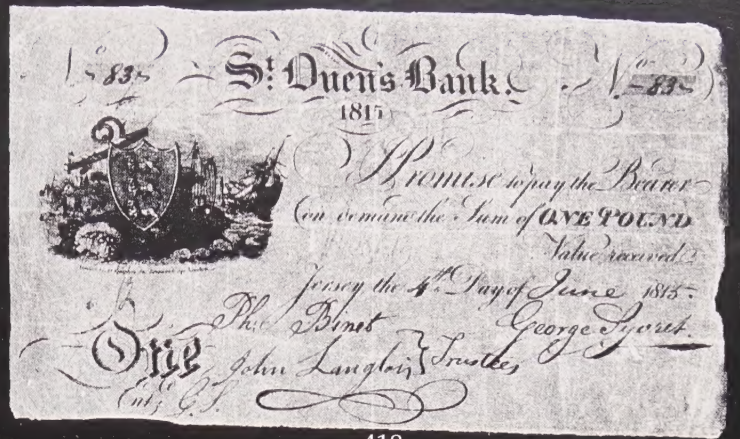 No. 83 St. Ouen's Bank. No. 83
1815
I Promise to pay the Bearer
on demand the Sum of ONE POUND
Value received
Jersey the 4th Day of June 1815.
Ph: Binet George Syvret.
One John Langlois } Trustees
Entd. G.S.
410